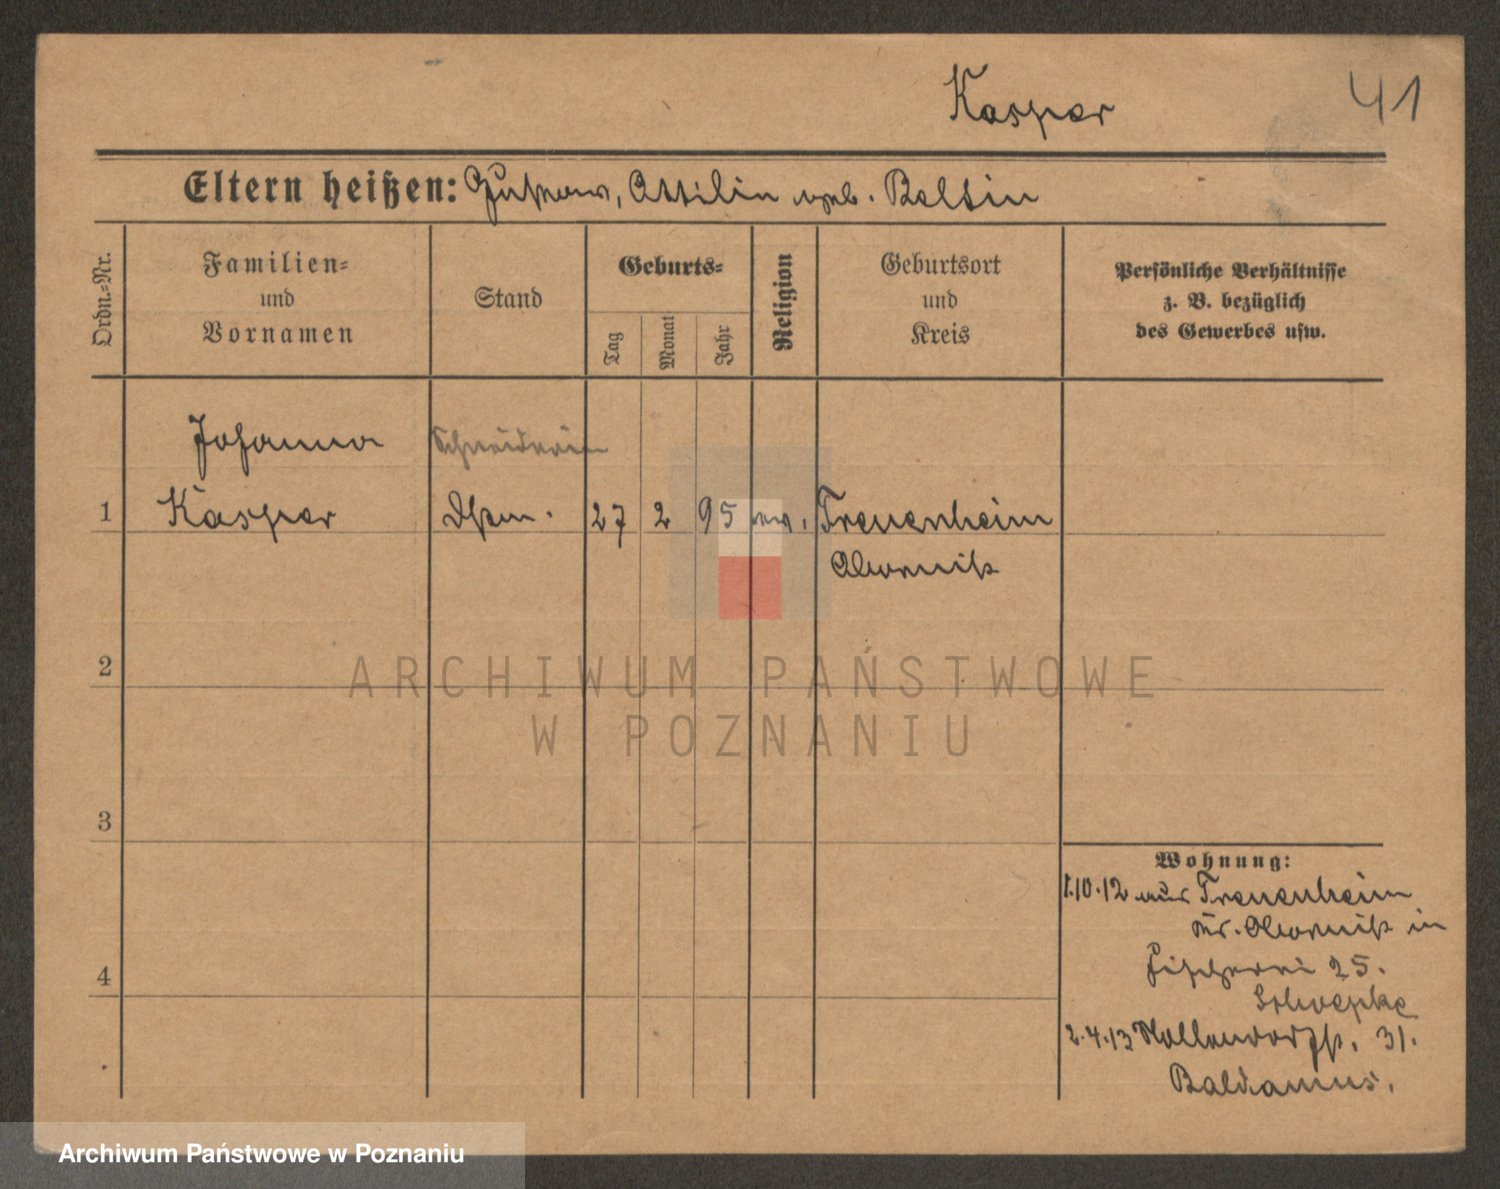 Kasper
41
Eltern heißen: Gustav, Ottilie geb. Beltin
Ordn.-Nr.
Familien-
und
Vornamen
Stand
Geburts-
Tag
Monat
Jahr
Religion
Geburtsort
und
Kreis
Persönliche Verhältnisse
z. B. bezüglich
des Gewerbes usw.
Johanna
Schneiderin
1 Kasper
27 2 95 ev. Treuenheim
Obornik
2
3
4
Wohnung:
1.10.12 aus Treuenheim
Kr. Obornik in
Fischerei 25.
Schwepke
2.4.13 Nollendorfst. 31.
Baldamus.
ARCHIWUM PAŃSTWOWE
W POZNANIU
Archiwum Państwowe w Poznaniu